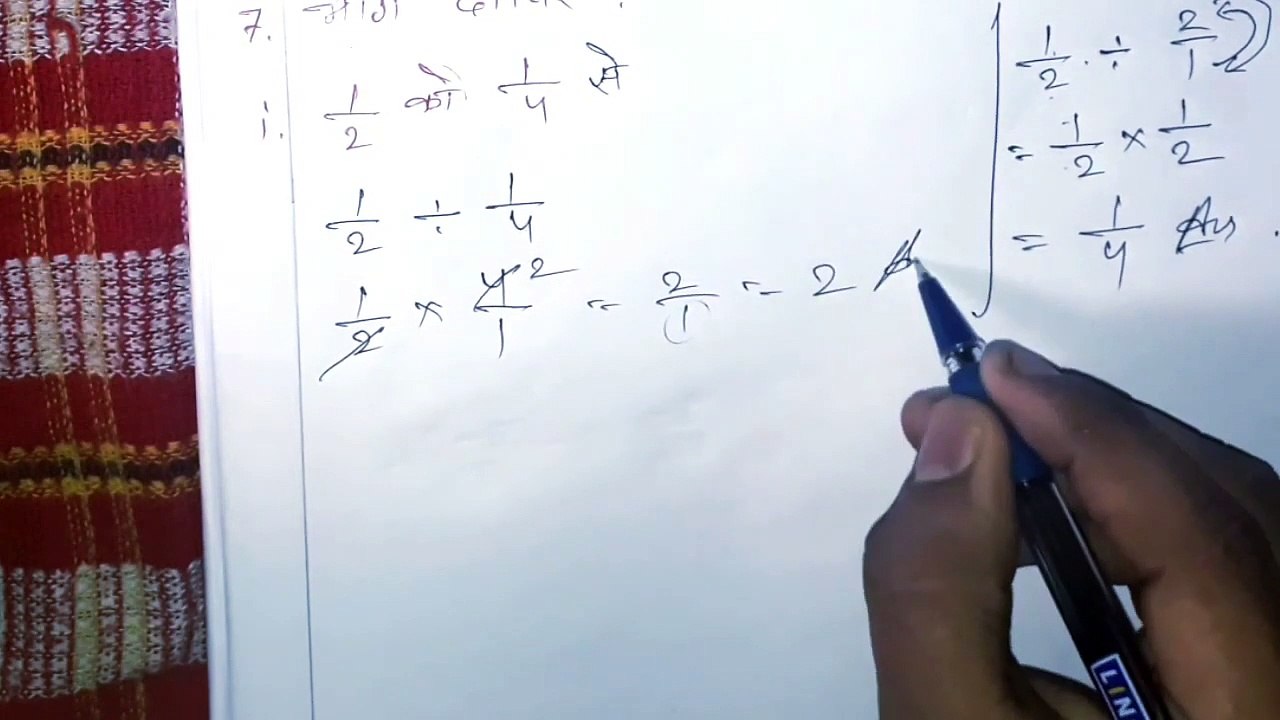 7. भाग
i. 1/2 को 1/4 से
1/2 ÷ 1/4
1/2 × 4/1 2 = 2/1 = 2
1/2 ÷ 2/1
= 1/2 × 1/2
= 1/4 Ans
LIN